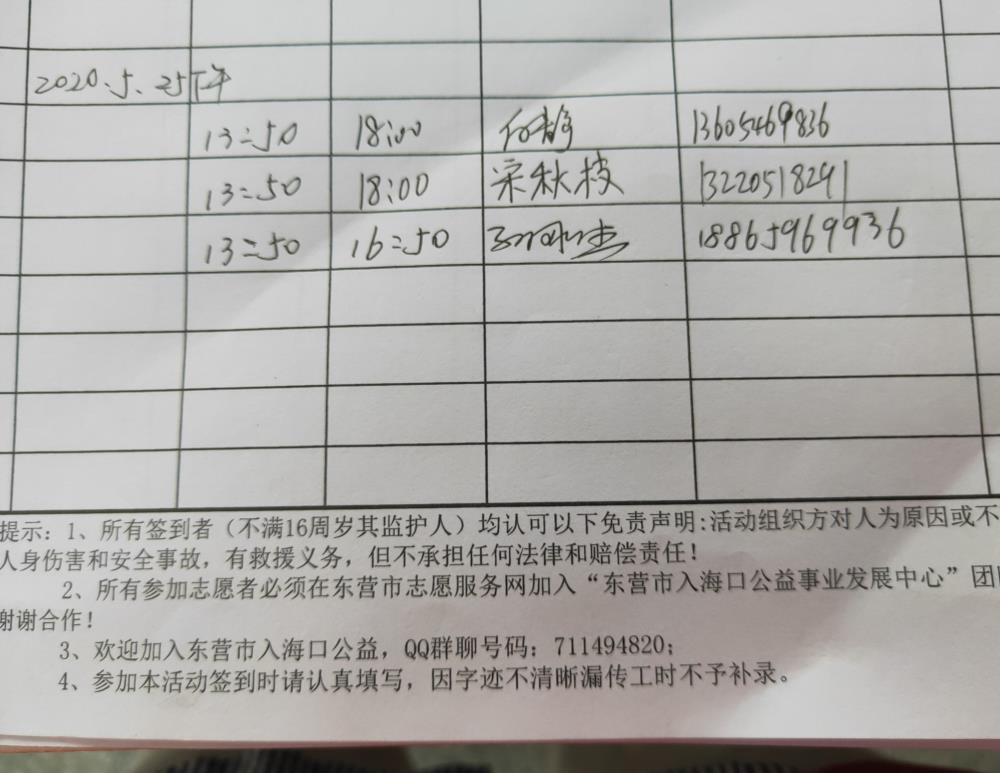 2020.5.25下午
13:50 18:00 何静 13605469836
13:50 18:00 宋秋枝 13220518291
13:50 16:50 18865969936
提示:1、所有签到者（不满16周岁其监护人）均认可以下免责声明:活动组织方对人为原因或不
人身伤害和安全事故，有救援义务，但不承担任何法律和赔偿责任！
2、所有参加志愿者必须在东营市志愿服务网加入“东营市入海口公益事业发展中心”团
谢谢合作！
3、欢迎加入东营市入海口公益，QQ群聊号码：711494820；
4、参加本活动签到时请认真填写，因字迹不清晰漏传工时不予补录。